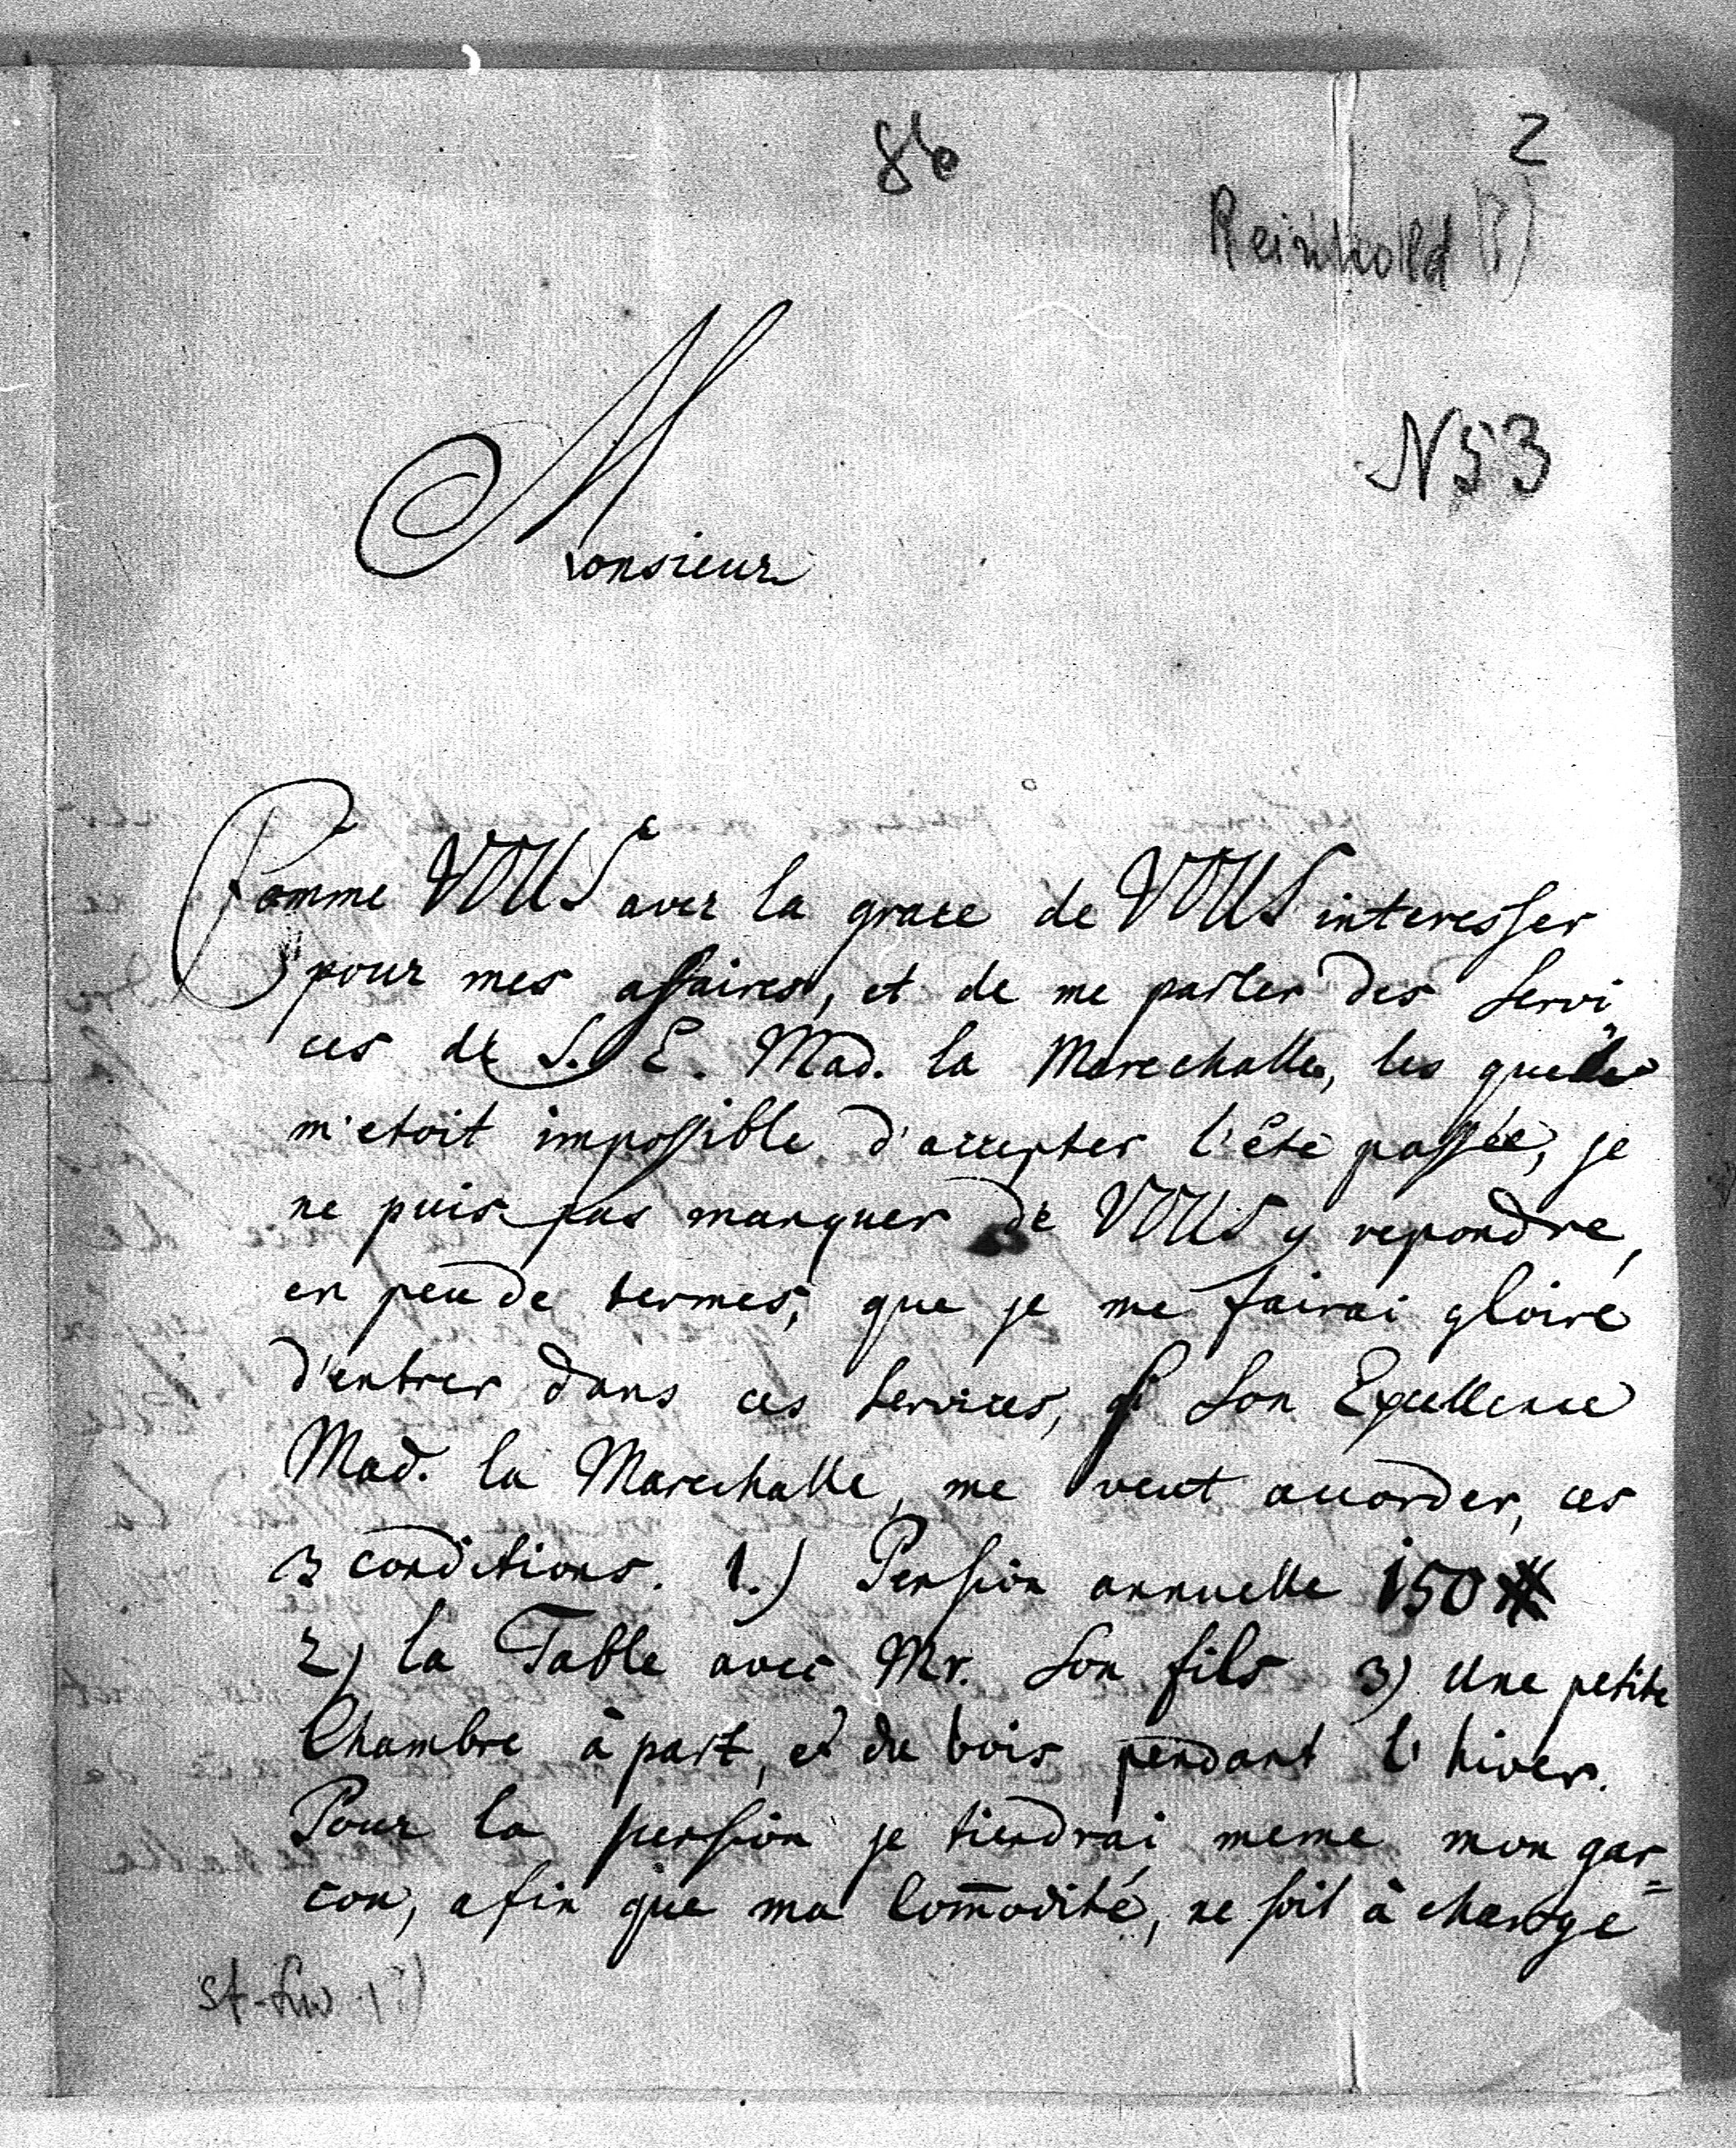 86
2
Reinhold (?)
N 53
Monsieur
Comme VOUS avez la grace de VOUS interesser
pour mes affaires, et de me parler des servi
ces de S. E. Mad. la Marechalle, les quelles
m'etoit impossible d'accepter l'êté passée, je
ne puis pas manquer de VOUS y repondre,
en peu de termes, que je me fairai gloire
d'entrer dans ces services, si son Excellence
Mad. la Marechalle, me veut accorder, ces
3 conditions. 1.) Pension annuelle 150 #
2) la Table avec Mr. son fils 3) une petite
Chambre à part, et du bois pendant l'hiver.
Pour la pension je tiendrai meme mon gar=
con, afin que ma Com̄odité, ne soit à charge